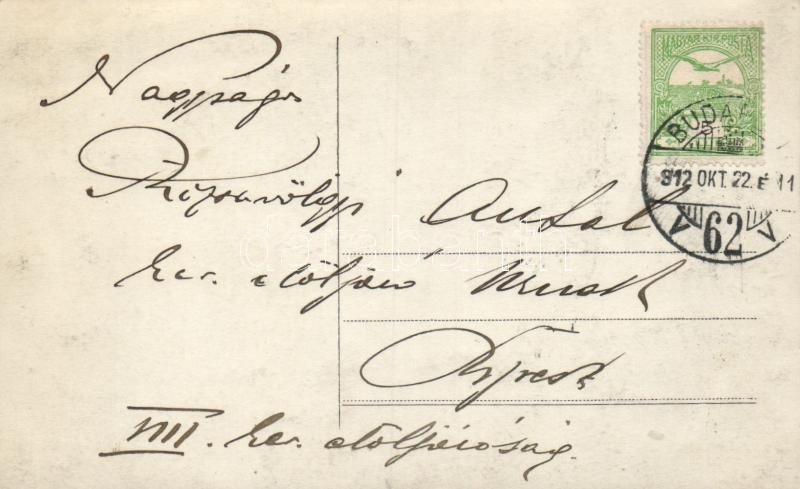 MAGYAR KIR. POSTA
BUDA
5
912 OKT. 22. É 11
62
Nagyságos
Rózsavölgyi Antal
ker. elöljáró Urnak
Bpest
VIII. ker. elöljáróság.
darabanth